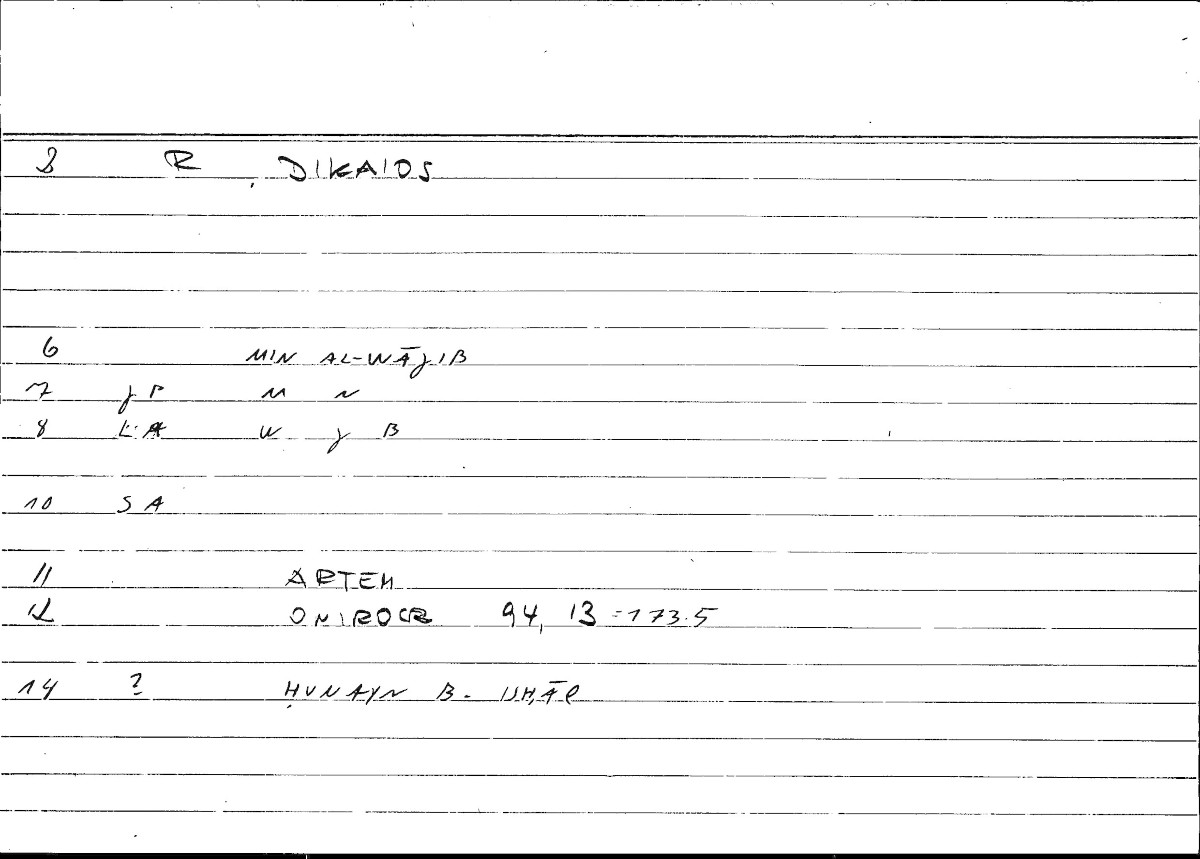 8 R DIKAIOS
6 MIN AL-WĀJIB
7 JP M N
8 LA W J B
10 SA
11 ARTEM
12 ONIROCR 94, 13 = 173.5
14 ? ḤUNAYN B. ISḤĀQ